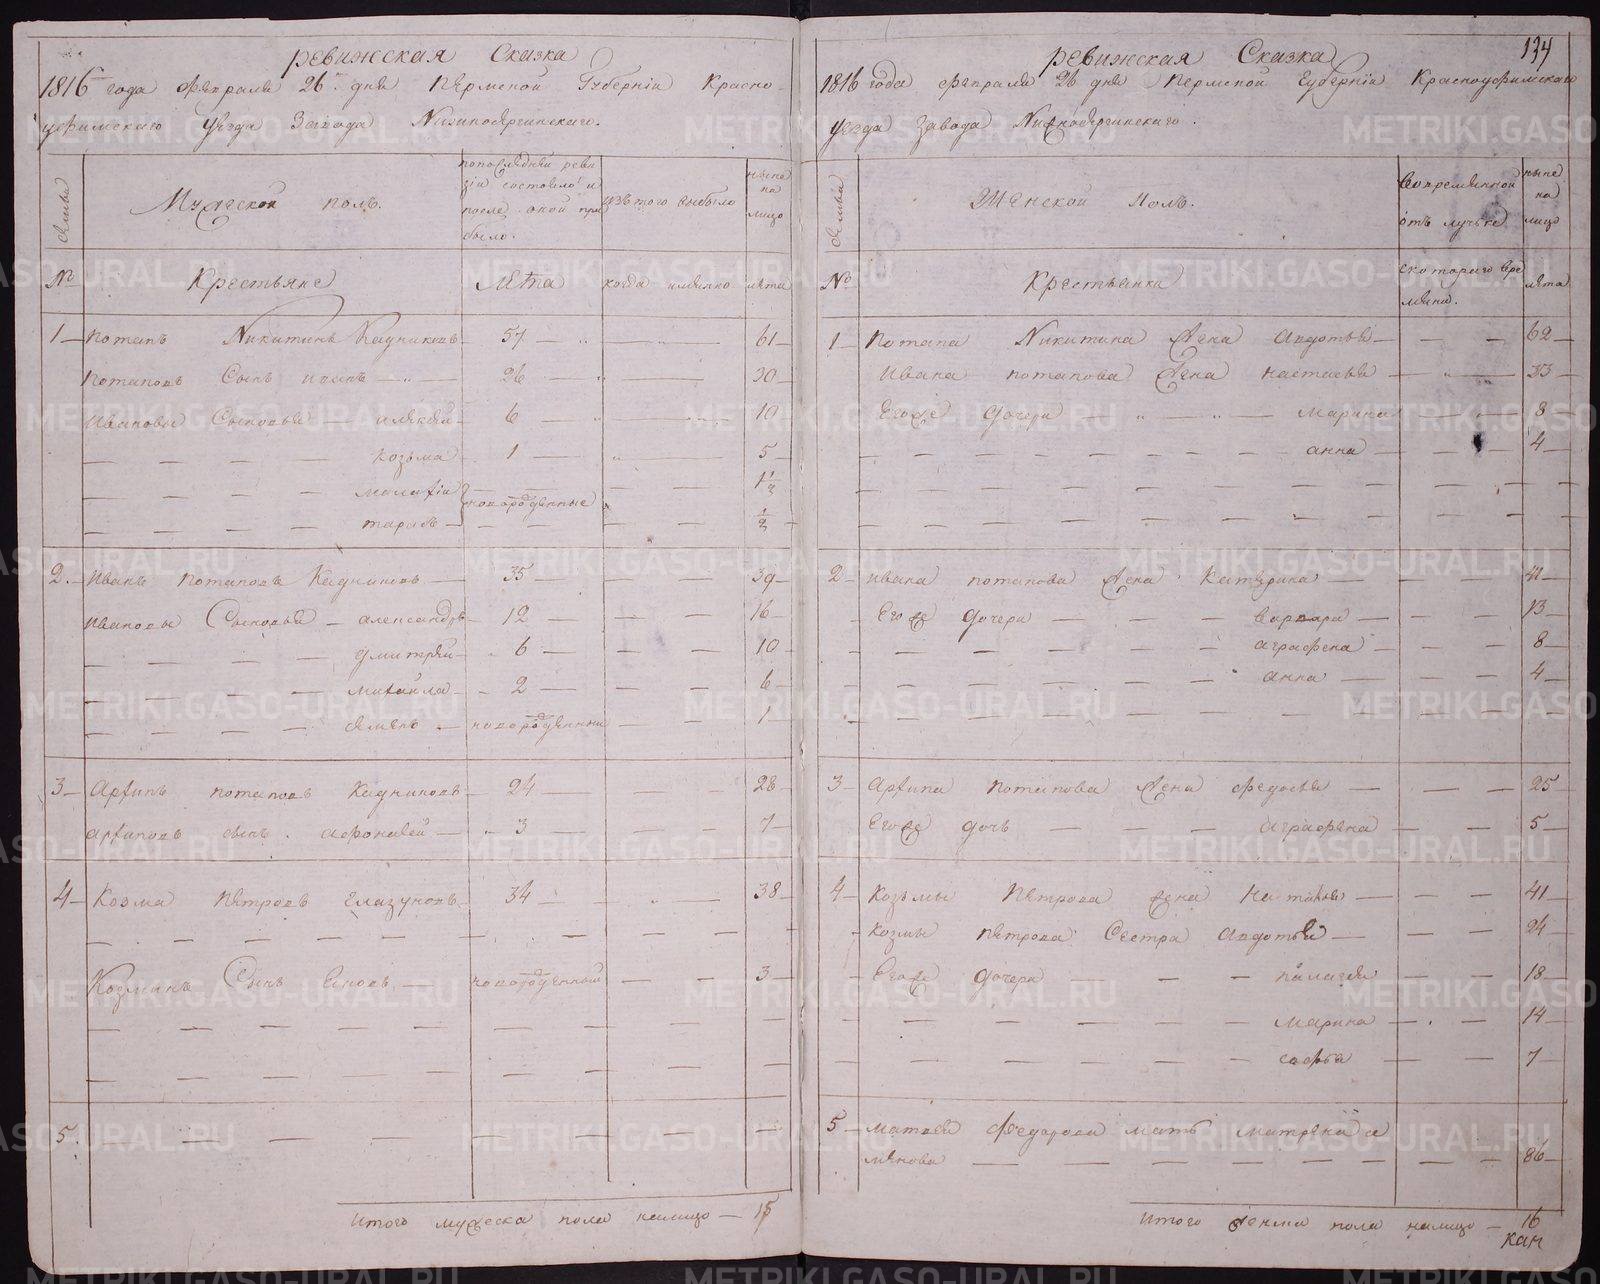 ревижская Сказка
1816 года февраля 26 дня Пермской Губернiи Красно-
уфимскаго уезда Завода Нижносергинскаго.
Семьи
Мужеской полъ.
попоследней реви
зiи состояло и
после оной при
было.
изъ того выбыло
ныне
на
лицо
№
Крестьяне
Лѣта
когда имянно
лѣта
1 Потапъ Никитинъ Кадниковъ 57 61
Потаповъ Сынъ иванъ 26 30
Ивановы Сыновья алексей 6 10
козьма 1 5
малафiй 1 1/2
новорожденные
тарасъ 1/2
2 Иванъ потаповъ Кадниковъ 35 39
Ивановы Сыновья александръ 12 16
дмитрей 6 10
михайла 2 6
семенъ новорожденный 1
3 Архипъ потаповъ Кадниковъ 24 28
архиповъ сынъ афонасей 3 7
4 Козма петровъ глазуновъ 34 38
Козминъ Сынъ новорожденной 3
5
итого мужеска пола налицо 15
134
ревижская Сказка
1816 года февраля 26 дня Пермской Губернiи Красноуфимскаго
уезда завода Нижносергинскаго.
Семьи
Женской полъ.
вовременной
отъ лучке
ныне
на
лицо
№
Крестьянки
скотораго вре
мяни.
лѣта
1 Потапа Никитина жена авдотья 62
Ивана потапова жена настасья 33
Егоже дочери марина 8
анна 4
2 ивана потапова жена катерина 41
Егоже дочери варвара 13
аграфена 8
анна 4
3 Архипа потапова жена федосья 25
Егоже дочь аграфена 5
4 козьмы Петрова жена наталья 41
козмы петрова Сестра авдотья 24
Егоже дочери палагея 18
марина 14
софья 7
5 матвея федорова мать матрена се
менова 86
итого женска пола налицо 16
METRIKI.GASO-URAL.RU